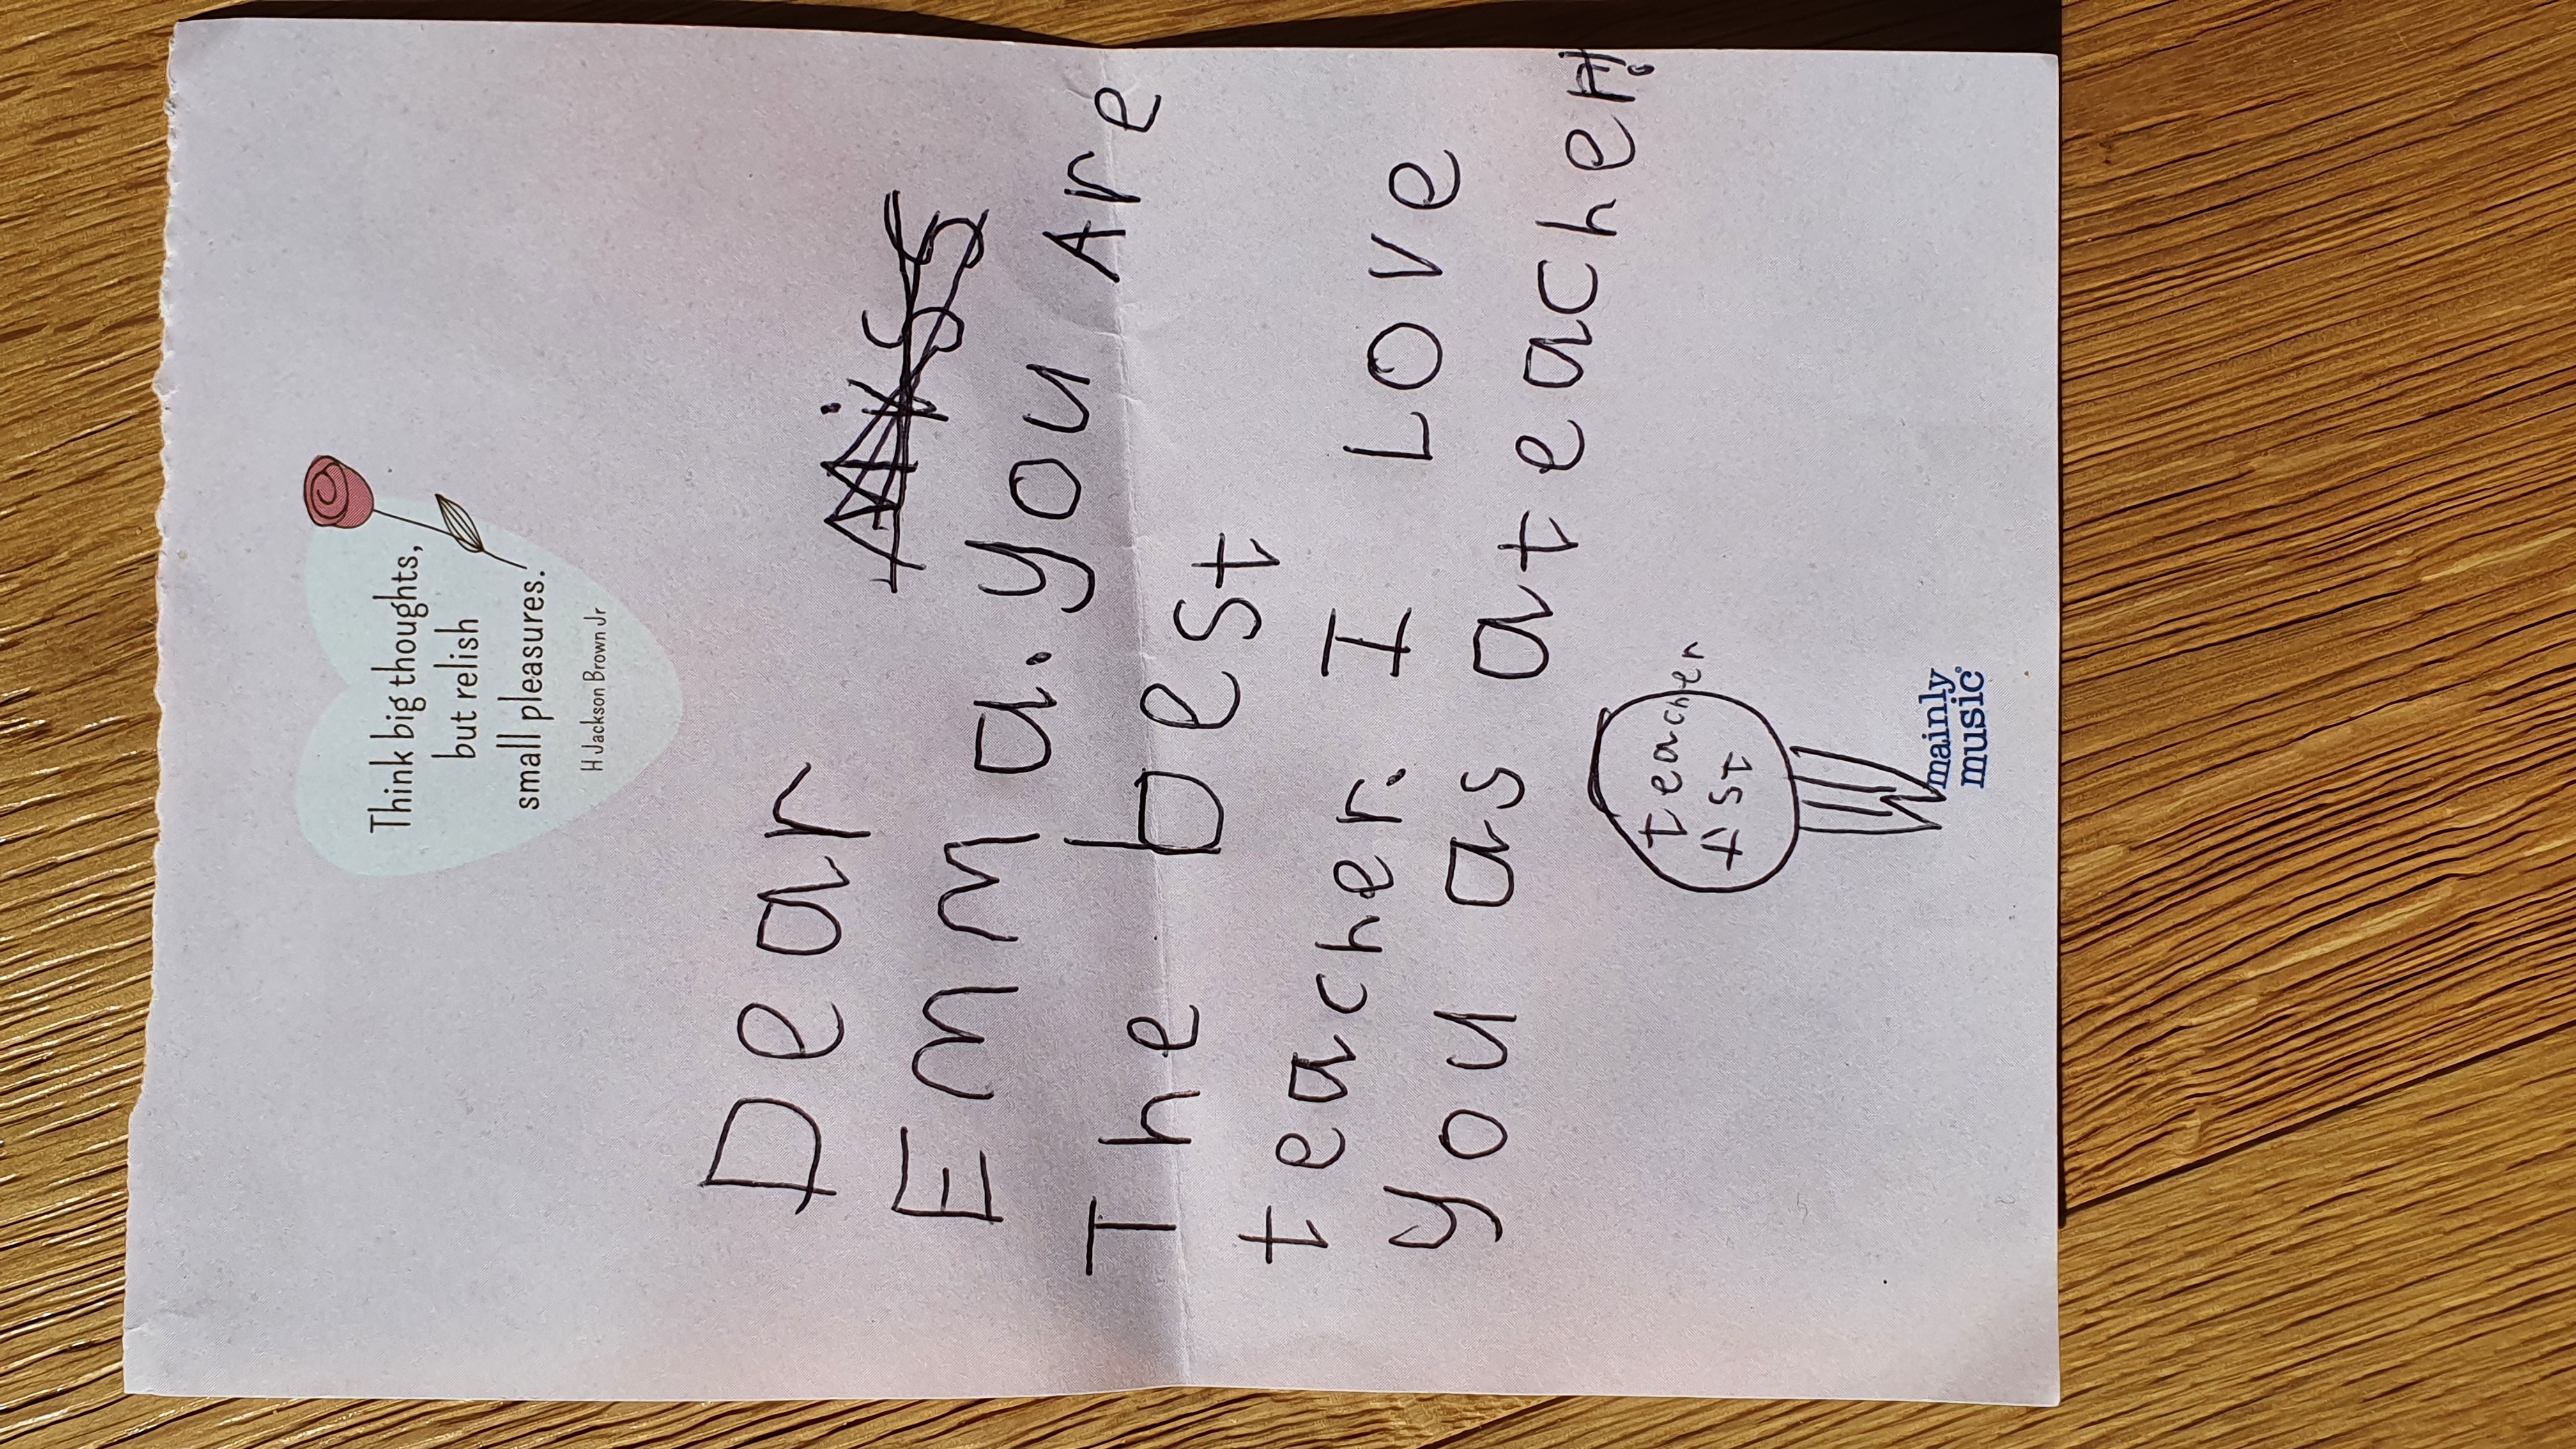 Think big thoughts,
but relish
small pleasures.
H Jackson Brown Jr
Dear Miss
Emma. you Are
The best
teacher. I Love
you as a teacher!
teacher
1st
mainly
music